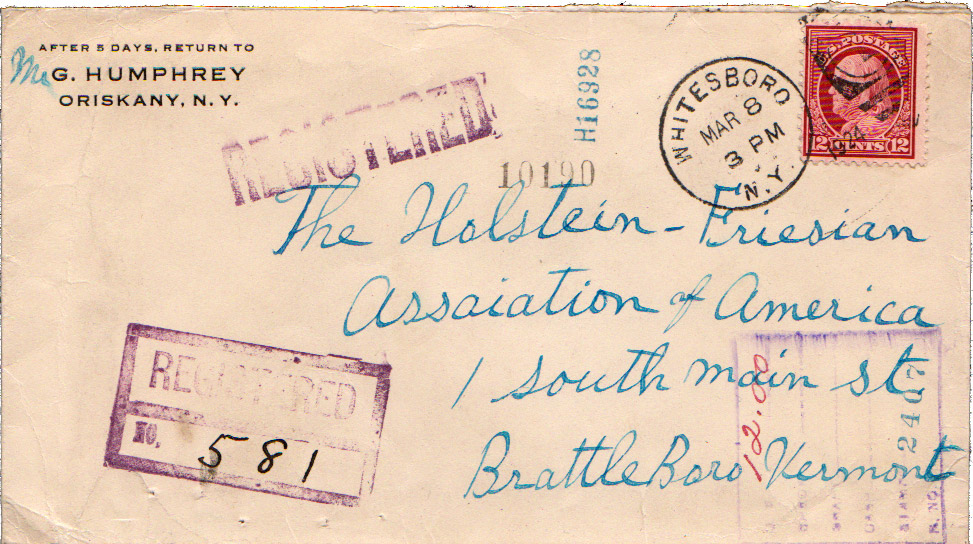 AFTER 5 DAYS, RETURN TO
Mr G. HUMPHREY
ORISKANY, N. Y.
REGISTERED
H16928
10190
WHITESBORO
MAR 8
3 PM
N.Y.
1924
U.S. POSTAGE
12 CENTS 12
The Holstein-Friesian
Assaiation of America
1 south main st
BrattleBoro Vermont
REGISTERED
NO. 581
12.00
2407